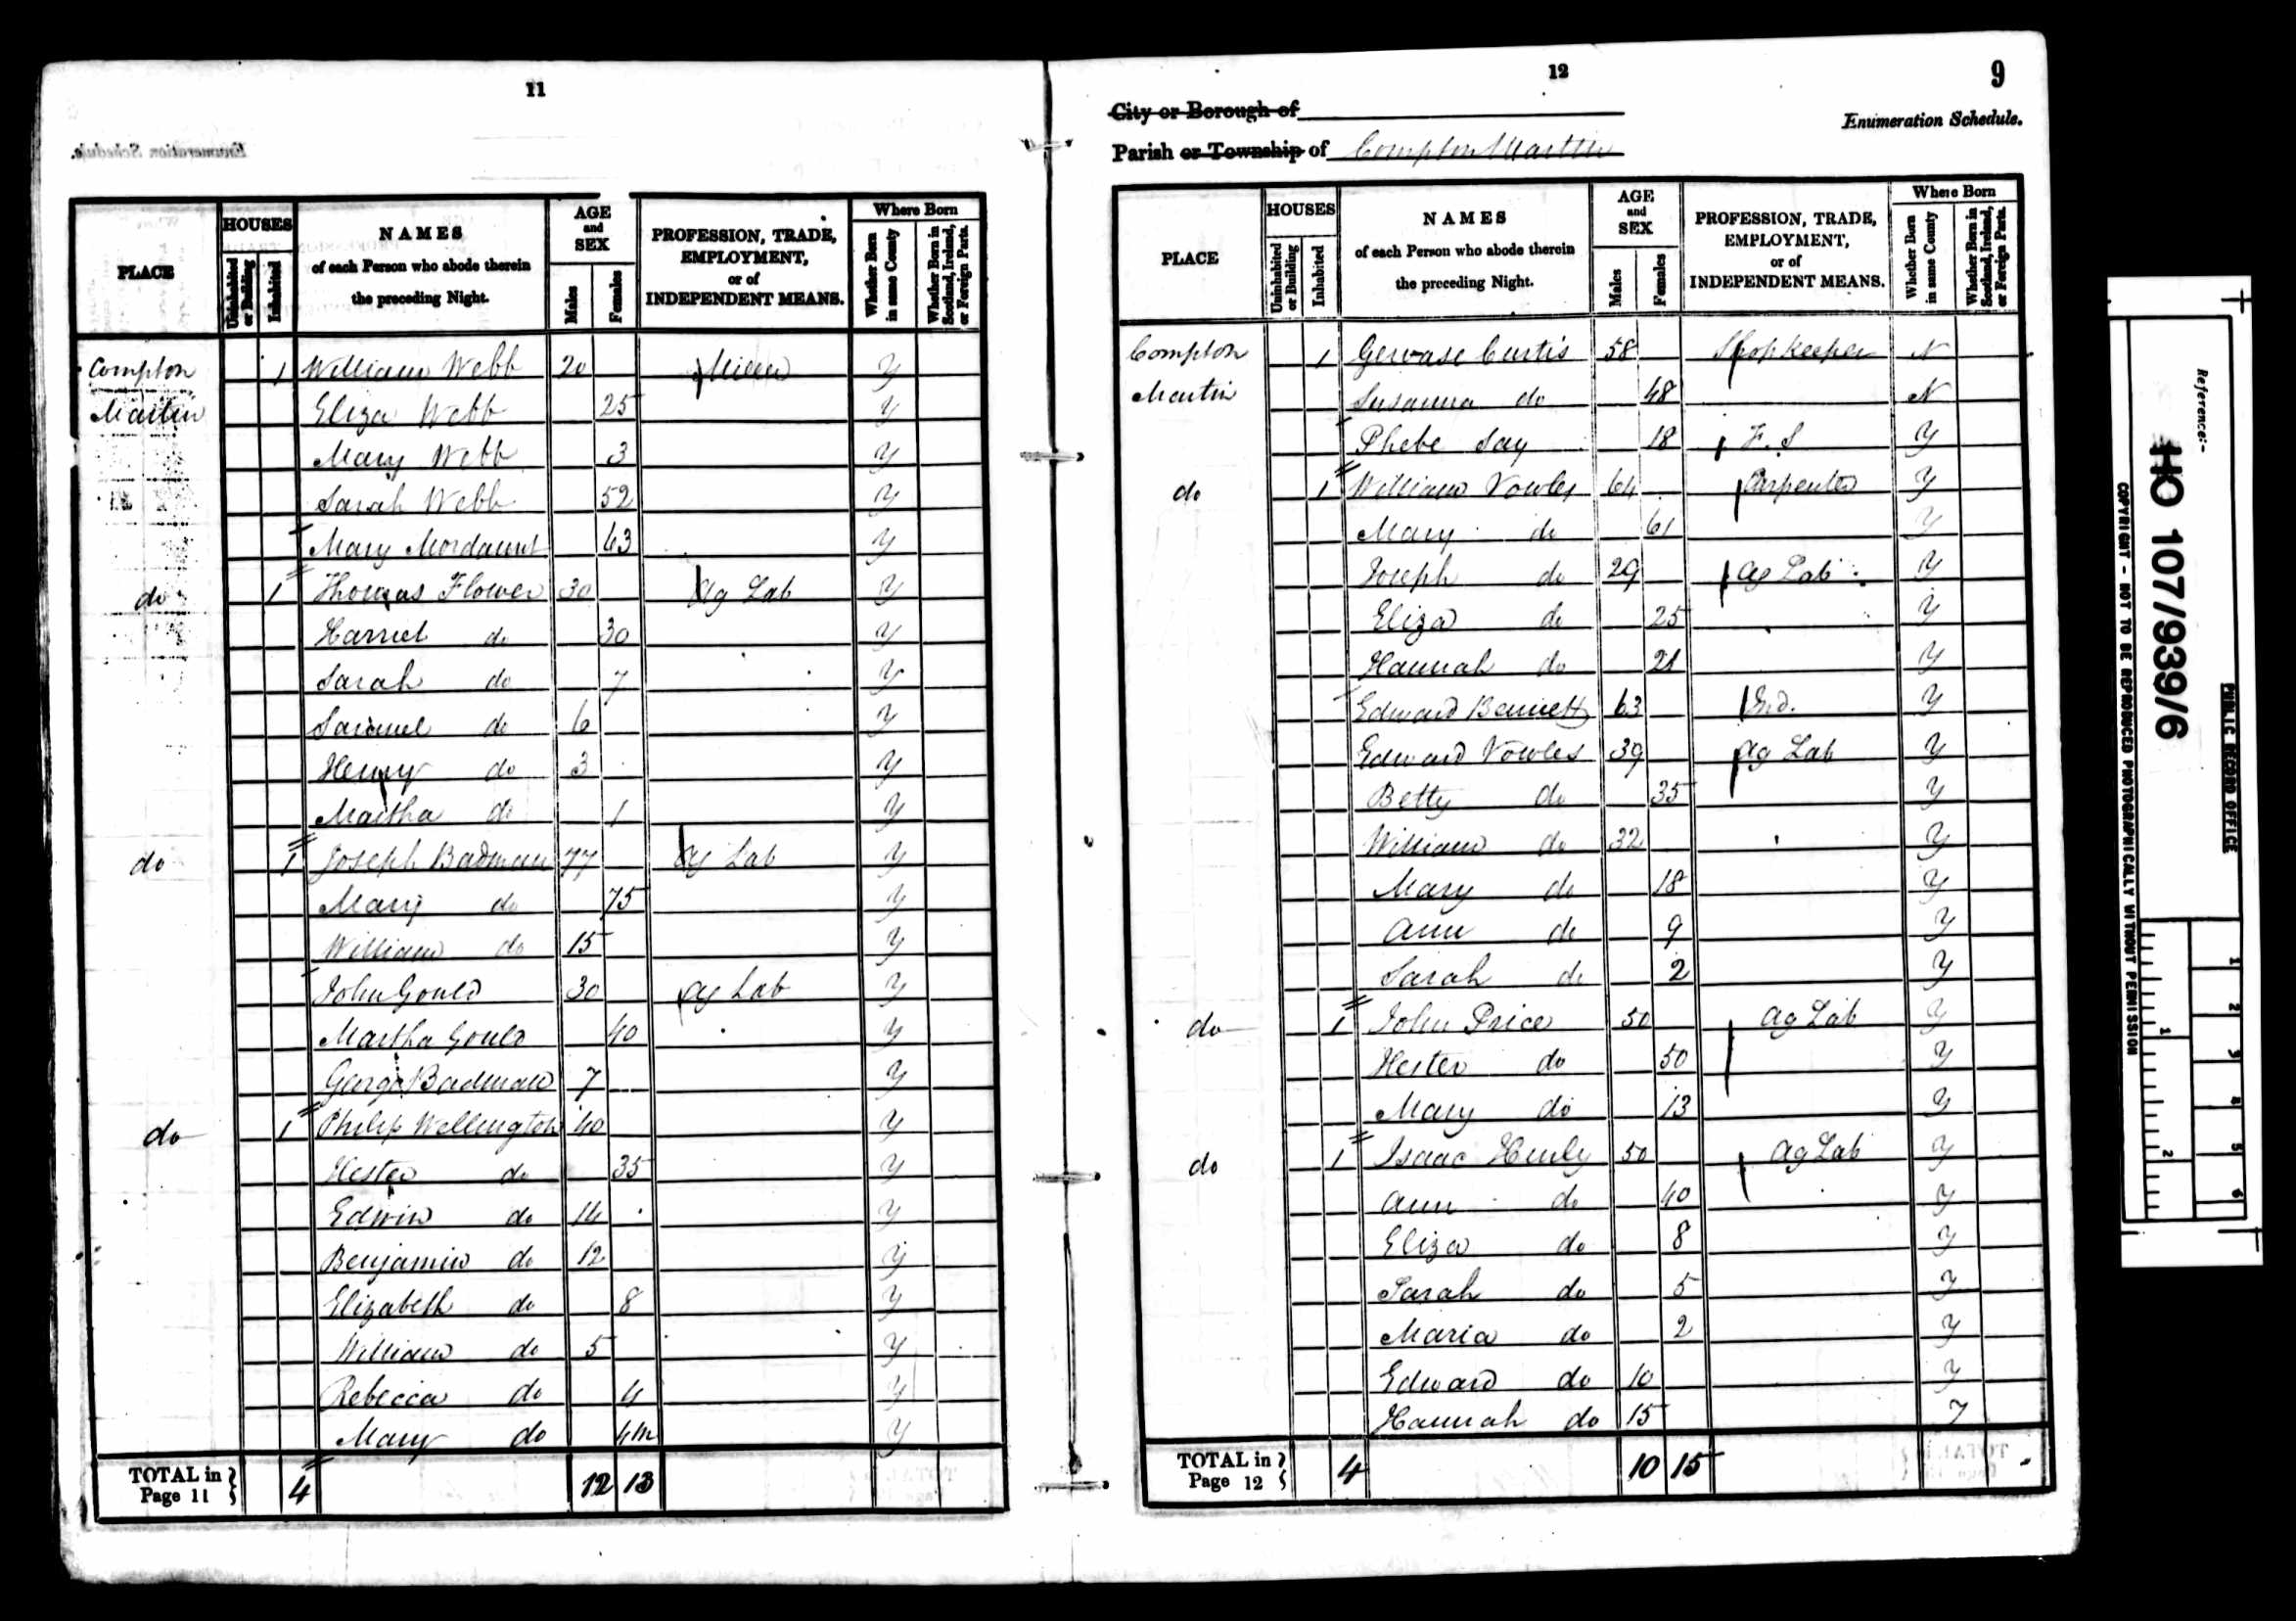 11
Enumeration Schedule.
PLACE
HOUSES
Uninhabited or Building
Inhabited
NAMES
of each Person who abode therein
the preceding Night.
AGE
and
SEX
Males
Females
PROFESSION, TRADE,
EMPLOYMENT,
or of
INDEPENDENT MEANS.
Where Born
Whether Born in same County
Whether Born in Scotland, Ireland, or Foreign Parts.
Compton 1 William Webb 20 Miner Y
Martin Eliza Webb 25 Y
Mary Webb 3 Y
Sarah Webb 52 Y
Mary Mordaunt 43 Y
do 1 Thomas Flower 30 Ag Lab Y
Harriet do 30 Y
Sarah do 7 Y
Samuel do 6 Y
Henry do 3 Y
Martha do 1 Y
do 1 Joseph Badman 77 Ag Lab Y
Mary do 75 Y
William do 15 Y
John Gould 30 Ag Lab Y
Martha Gould 40 Y
George Badman 7 Y
do 1 Philip Wellington 40 Y
Hester do 35 Y
Edwin do 14 Y
Benjamin do 12 Y
Elizabeth do 8 Y
William do 5 Y
Rebecca do 4 Y
Mary do 4m Y
TOTAL in Page 11 4 12 13
12
9
City or Borough of
Enumeration Schedule.
Parish or Township of Compton Martin
PLACE
HOUSES
Uninhabited or Building
Inhabited
NAMES
of each Person who abode therein
the preceding Night.
AGE
and
SEX
Males
Females
PROFESSION, TRADE,
EMPLOYMENT,
or of
INDEPENDENT MEANS.
Where Born
Whether Born in same County
Whether Born in Scotland, Ireland, or Foreign Parts.
Compton 1 Gervase Curtis 58 Shopkeeper N
Martin Susanna do 48 N
Phebe Say 18 F. S Y
do 1 William Vowles 64 Carpenter Y
Mary do 61 Y
Joseph do 29 Ag Lab Y
Eliza do 25 Y
Hannah do 21 Y
Edward Bennett 63 Ind. Y
Edward Vowles 39 Ag Lab Y
Betty do 35 Y
William do 32 Y
Mary do 18 Y
Ann do 9 Y
Sarah do 2 Y
do 1 John Price 50 Ag Lab Y
Hester do 50 Y
Mary do 13 Y
do 1 Isaac Henly 50 Ag Lab Y
Ann do 40 Y
Eliza do 8 Y
Sarah do 5 Y
Maria do 2 Y
Edward do 10 Y
Hannah do 15 Y
TOTAL in Page 12 4 10 15
Reference:-
HO 107/939/6
PUBLIC RECORD OFFICE
COPYRIGHT - NOT TO BE REPRODUCED PHOTOGRAPHICALLY WITHOUT PERMISSION
1
2
1
2
3
4
5
6